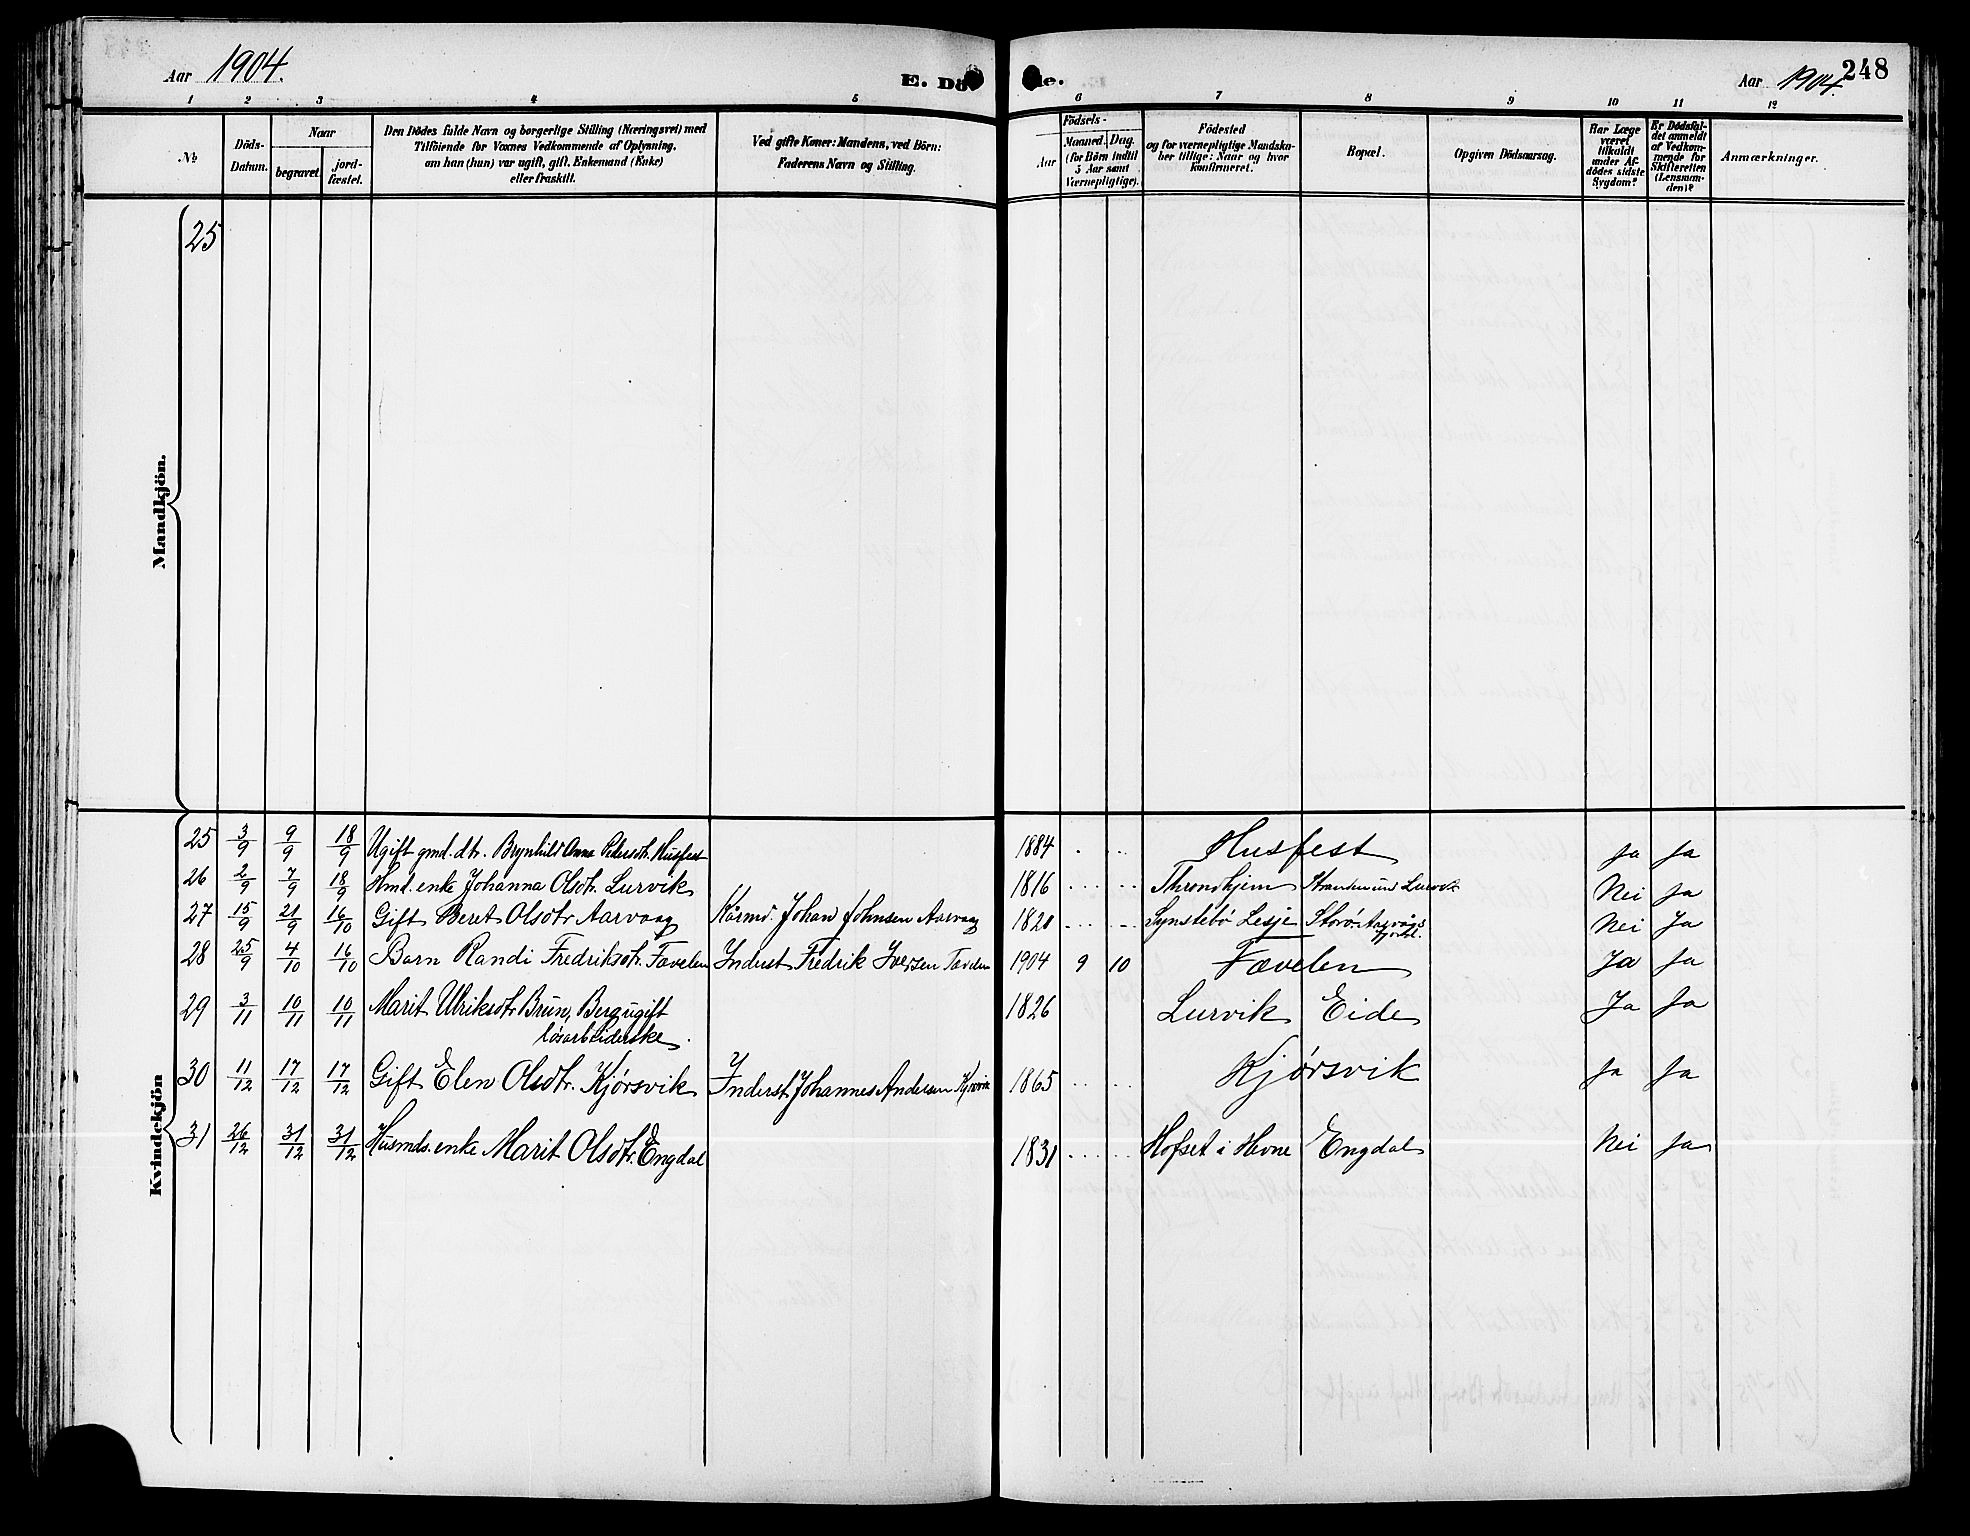 Aar 1904.
E. Dö de.
Aar 1904.
248
1 2 3 4 5 6 7 8 9 10 11 12
No
Döds-Datum.
Naar
begravet.
jord-fæstet.
Den Dödes fulde Navn og borgerlige Stilling (Næringsvei) med
Tilföiende for Voxnes Vedkommende af Oplysning,
om han (hun) var ugift, gift, Enkemand (Enke)
eller fraskilt.
Ved gifte Koner: Mandens, ved Börn:
Faderens Navn og Stilling.
Födsels-
Aar
Maaned. Dag.
(for Börn indtil
5 Aar samt
Værnepligtige).
Födested
og for værnepligtige Mandska-
ber tillige: Naar og hvor
konfirmeret.
Bopæl.
Opgiven Dödsaarsag.
Har Læge
været
tilkaldt
under Af-
dödes sidste
Sygdom?
Er Dödsfal-
det anmeldt
af Vedkom-
mende for
Skifteretten
(Lensman-
den)?
Anmærkninger.
Mandkjön.
25
Kvindekjön
25 3/9 9/9 18/9 Ugift gmd. dtr. Brynhild Anna Pedersdtr. Husfest 1884 Husfest ja ja
26 2/9 7/9 18/9 Hmd. enke Johanna Olsdtr. Lurvik 1816 Throndhjem Lurvik Nei ja
27 15/9 21/9 16/10 Gift Beret Olsdtr Aarvaag Kårmd. Johan Johnsen Aarvaag 1820 Synstebö Lesje Storö. Nei Ja
28 25/9 4/10 16/10 Barn Randi Fredriksdtr. Tævelen Inderst Fredrik Iversen Tævelen 1904 9 10 Tævelen Ja Ja
29 3/11 10/11 10/11 Marit Ulriksdtr Brun, Berg ugift
løsarbeiderske. 1826 Lurvik Eide Ja Ja
30 11/12 17/12 17/12 Gift Elen Olsdtr. Kjørsvik Inderst Johannes Andersen Kjørsvik 1865 Kjørsvik ja ja
31 26/12 31/12 31/12 Husmds. enke Marit Olsdtr. Engdal 1831 Hofset i Hevne Engdal Nei Ja